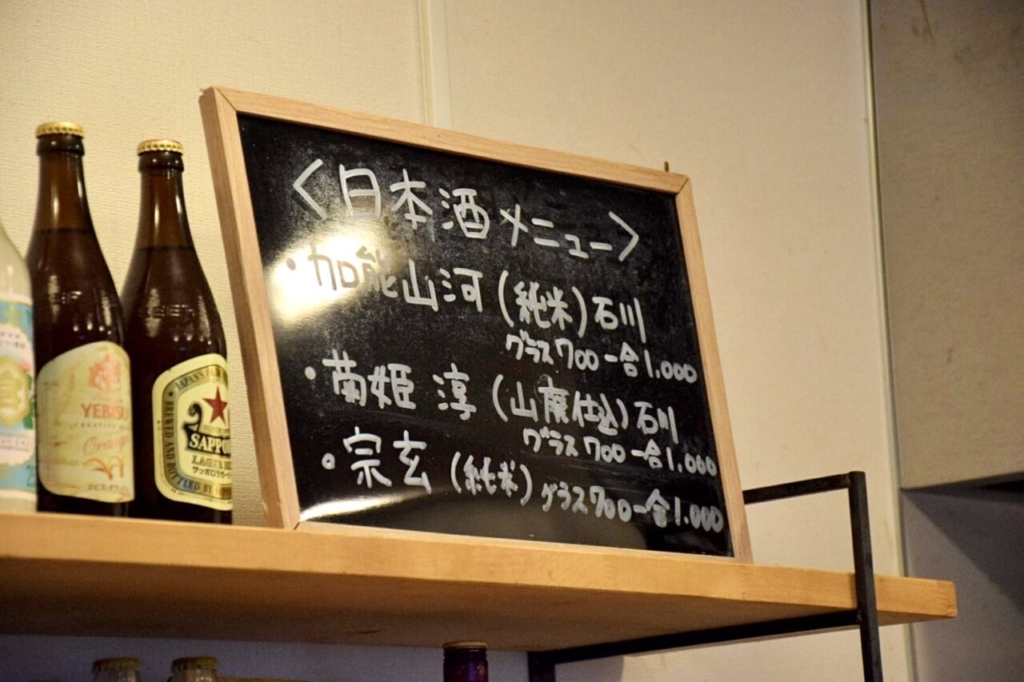 <日本酒メニュー>
・加能山河(純米)石川
グラス700 一合1,000
・菊姫 淳(山廃仕込)石川
グラス700 一合1,000
・宗玄(純米)グラス700 一合1.000
YEBISU
JAPAN'S
BREWED AND BOTTLED BY
SAPPORO
LAGER BEER
サッポロラガービール